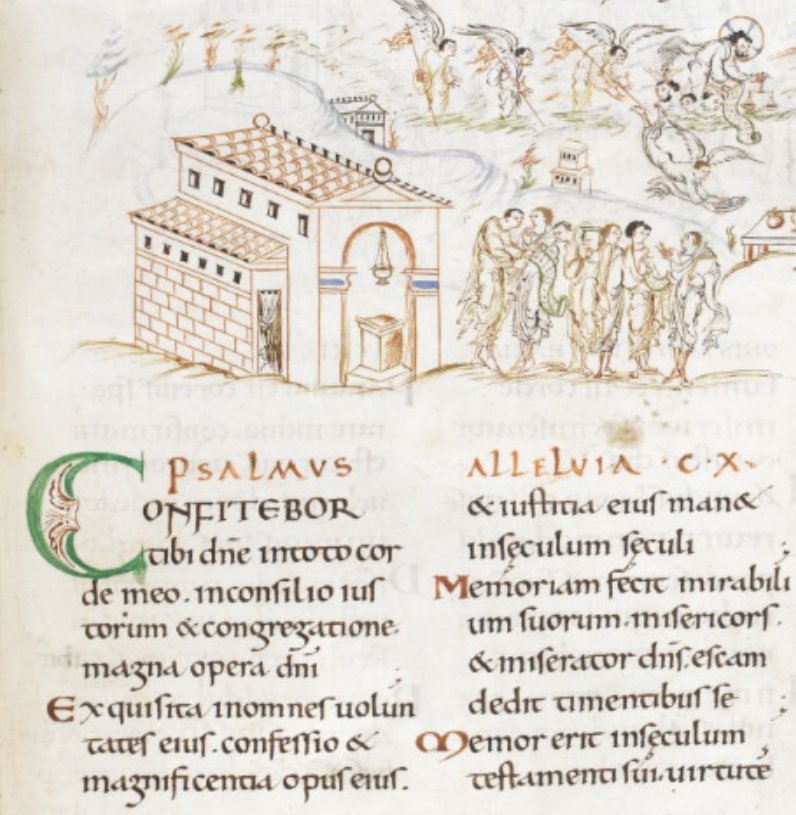 PSALMVS
CONFITEBOR
tibi dn̄e intoto cor
de meo. inconsilio ius
torum &congregatione.
magna opera dn̄i
Exquisita inomnes uolun
tates eius. confessio &
magnificentia opus eius.
ALLELVIA CX.
&iustitia eius man&
insęculum sęculi
Memoriam fecit mirabili
um suorum. misericors.
&miserator dn̄s. escam
dedit timentibus se
Memor erit insęculum
testamenti sui. uirtutē